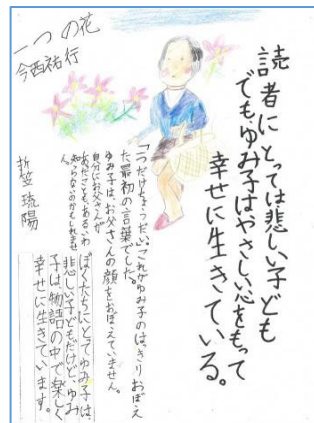 読者にとっては悲しい子ども
でも、ゆみ子はやさしい心をもって
幸せに生きている。
一つの花
今西祐行
「一つだけちょうだい。」これがゆみ子のはっきりおぼえ
た最初の言葉でした。
ゆみ子は、お父さんの顔をおぼえていません。
自分にお父さんが
あったことも、あるいわ
知らないのかもしれませ
ん。
ぼくたちにとってゆみ子は、
悲しい子どもだけど、ゆみ
子は物語の中で楽しく
幸せに生きています。
琉陽